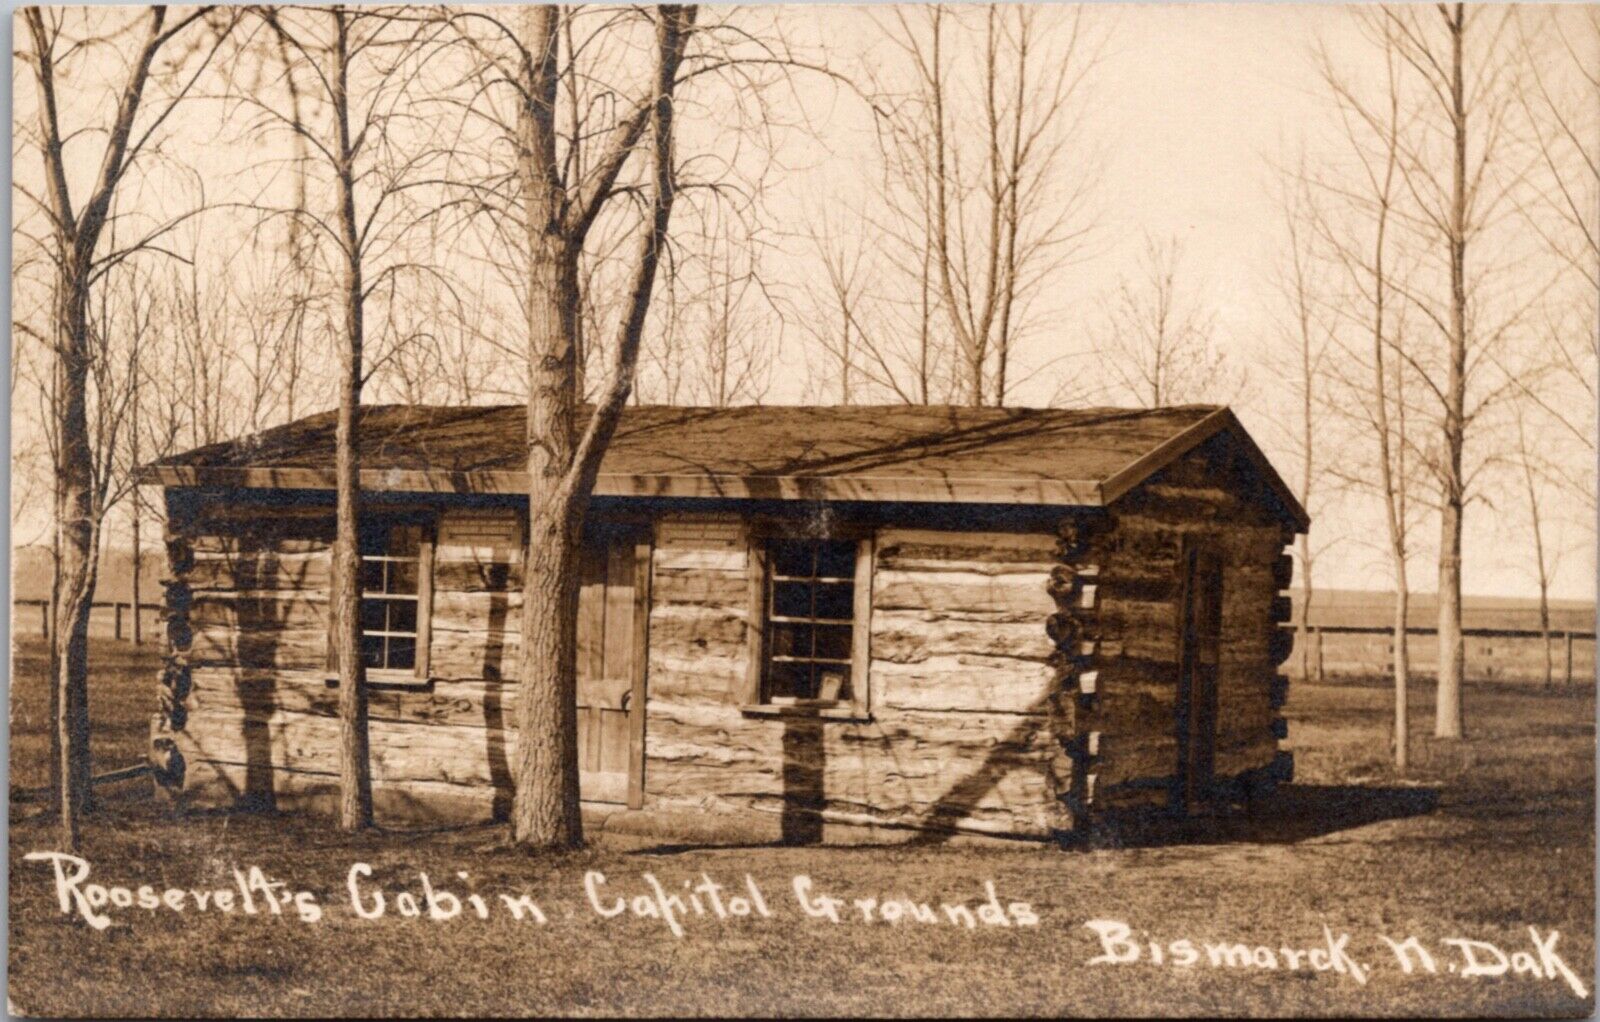 Roosevelt's Cabin Capitol Grounds
Bismarck. N. Dak